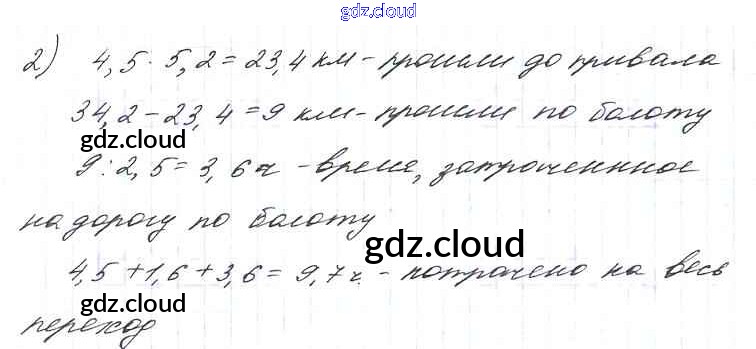 gdz.cloud
2) 4,5 · 5,2 = 23,4 км - прошли до привала
34,2 - 23,4 = 9 км - прошли по болоту
gdz.cloud
9 : 2,5 = 3,6 ч - время, затраченное
на дорогу по болоту
gdz.cloud
4,5 + 1,6 + 3,6 = 9,7 ч. - потрачено на весь
gdz.cloud
переход